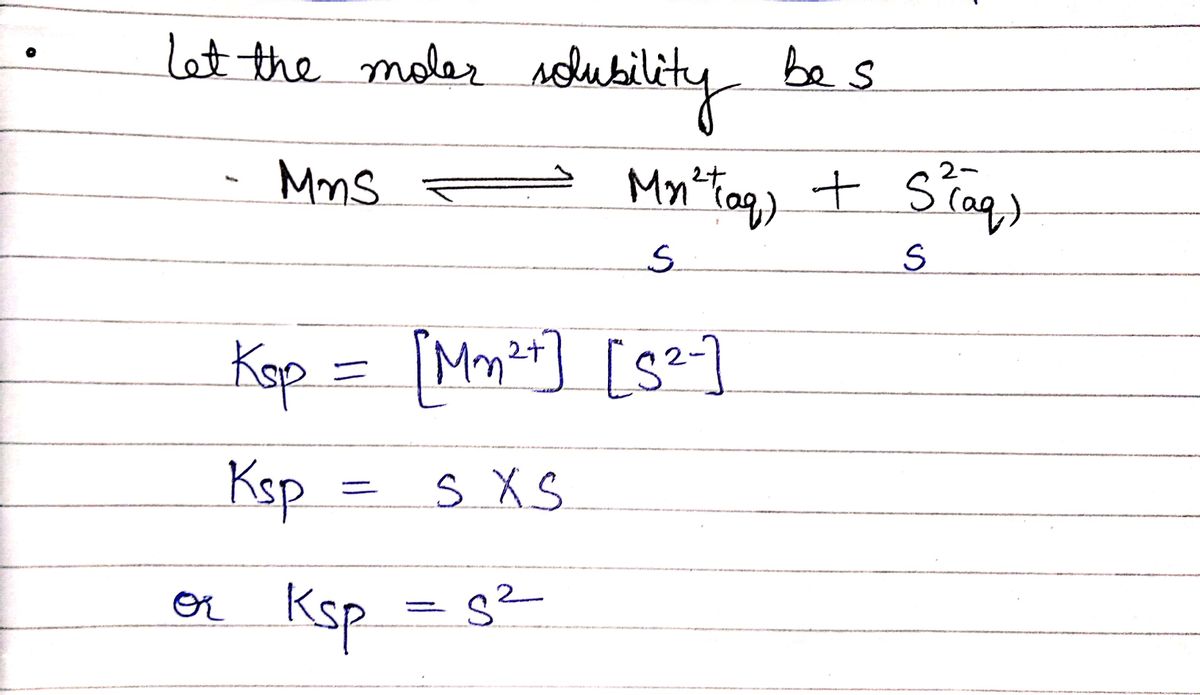 • Let the molar solubility be s
- MnS ⇌ Mn²⁺(aq) + S²⁻(aq)
s s
Ksp = [Mn²⁺] [S²⁻]
Ksp = s × s
or Ksp = s²